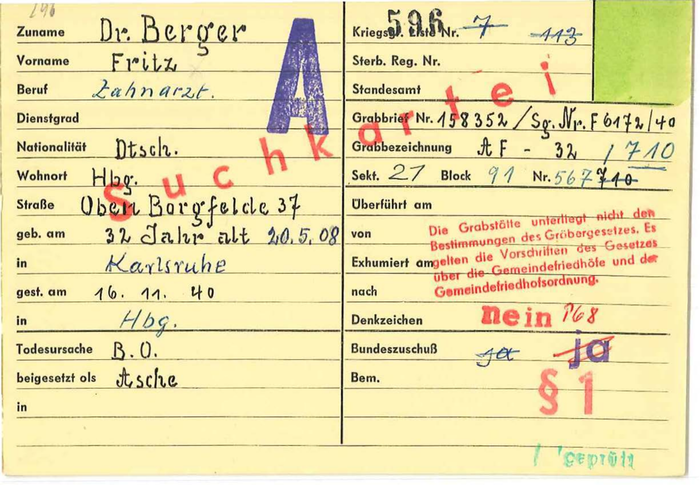 196
Zuname Dr. Berger
Vorname Fritz
Beruf Zahnarzt.
Dienstgrad
Nationalität Dtsch.
Wohnort Hbg.
Straße Oben Borgfelde 37
geb. am 32 Jahr alt 20.5.08
in Karlsruhe
gest. am 16. 11. 40
in Hbg.
Todesursache B.O.
beigesetzt als Asche
in
A
Suchkartei
596
Kriegsgr. Liste Nr. 7 113
Sterb. Reg. Nr.
Standesamt
Grabbrief Nr. 158352/Sg.Nr.F6172/40
Grabbezeichnung AF - 32 / 710
Sekt. 27 Block 91 Nr. 567 710
Überführt am
von
Exhumiert am
nach
Die Grabstätte unterliegt nicht den
Bestimmungen des Gräbergesetzes. Es
gelten die Vorschriften des Gesetzes
über die Gemeindefriedhöfe und der
Gemeindefriedhofsordnung.
Denkzeichen nein P68
Bundeszuschuß ja ja
Bem. § 1
geprüft